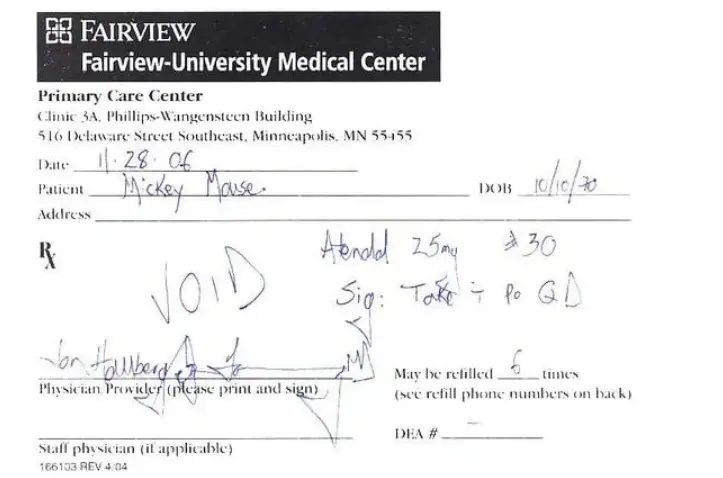 FAIRVIEW
Fairview-University Medical Center
Primary Care Center
Clinic 3A, Phillips-Wangensteen Building
516 Delaware Street Southeast, Minneapolis, MN 55455
Date 11·28·06
Patient Mickey Mouse. DOB 10/10/70
Address
Rx Atenolol 25mg #30
VOID Sig: Take ÷ Po QD
Jon Hallberg MD May be refilled 6 times
Physician/Provider (please print and sign) (see refill phone numbers on back)
DEA # —
Staff physician (if applicable)
166103 REV 4/04